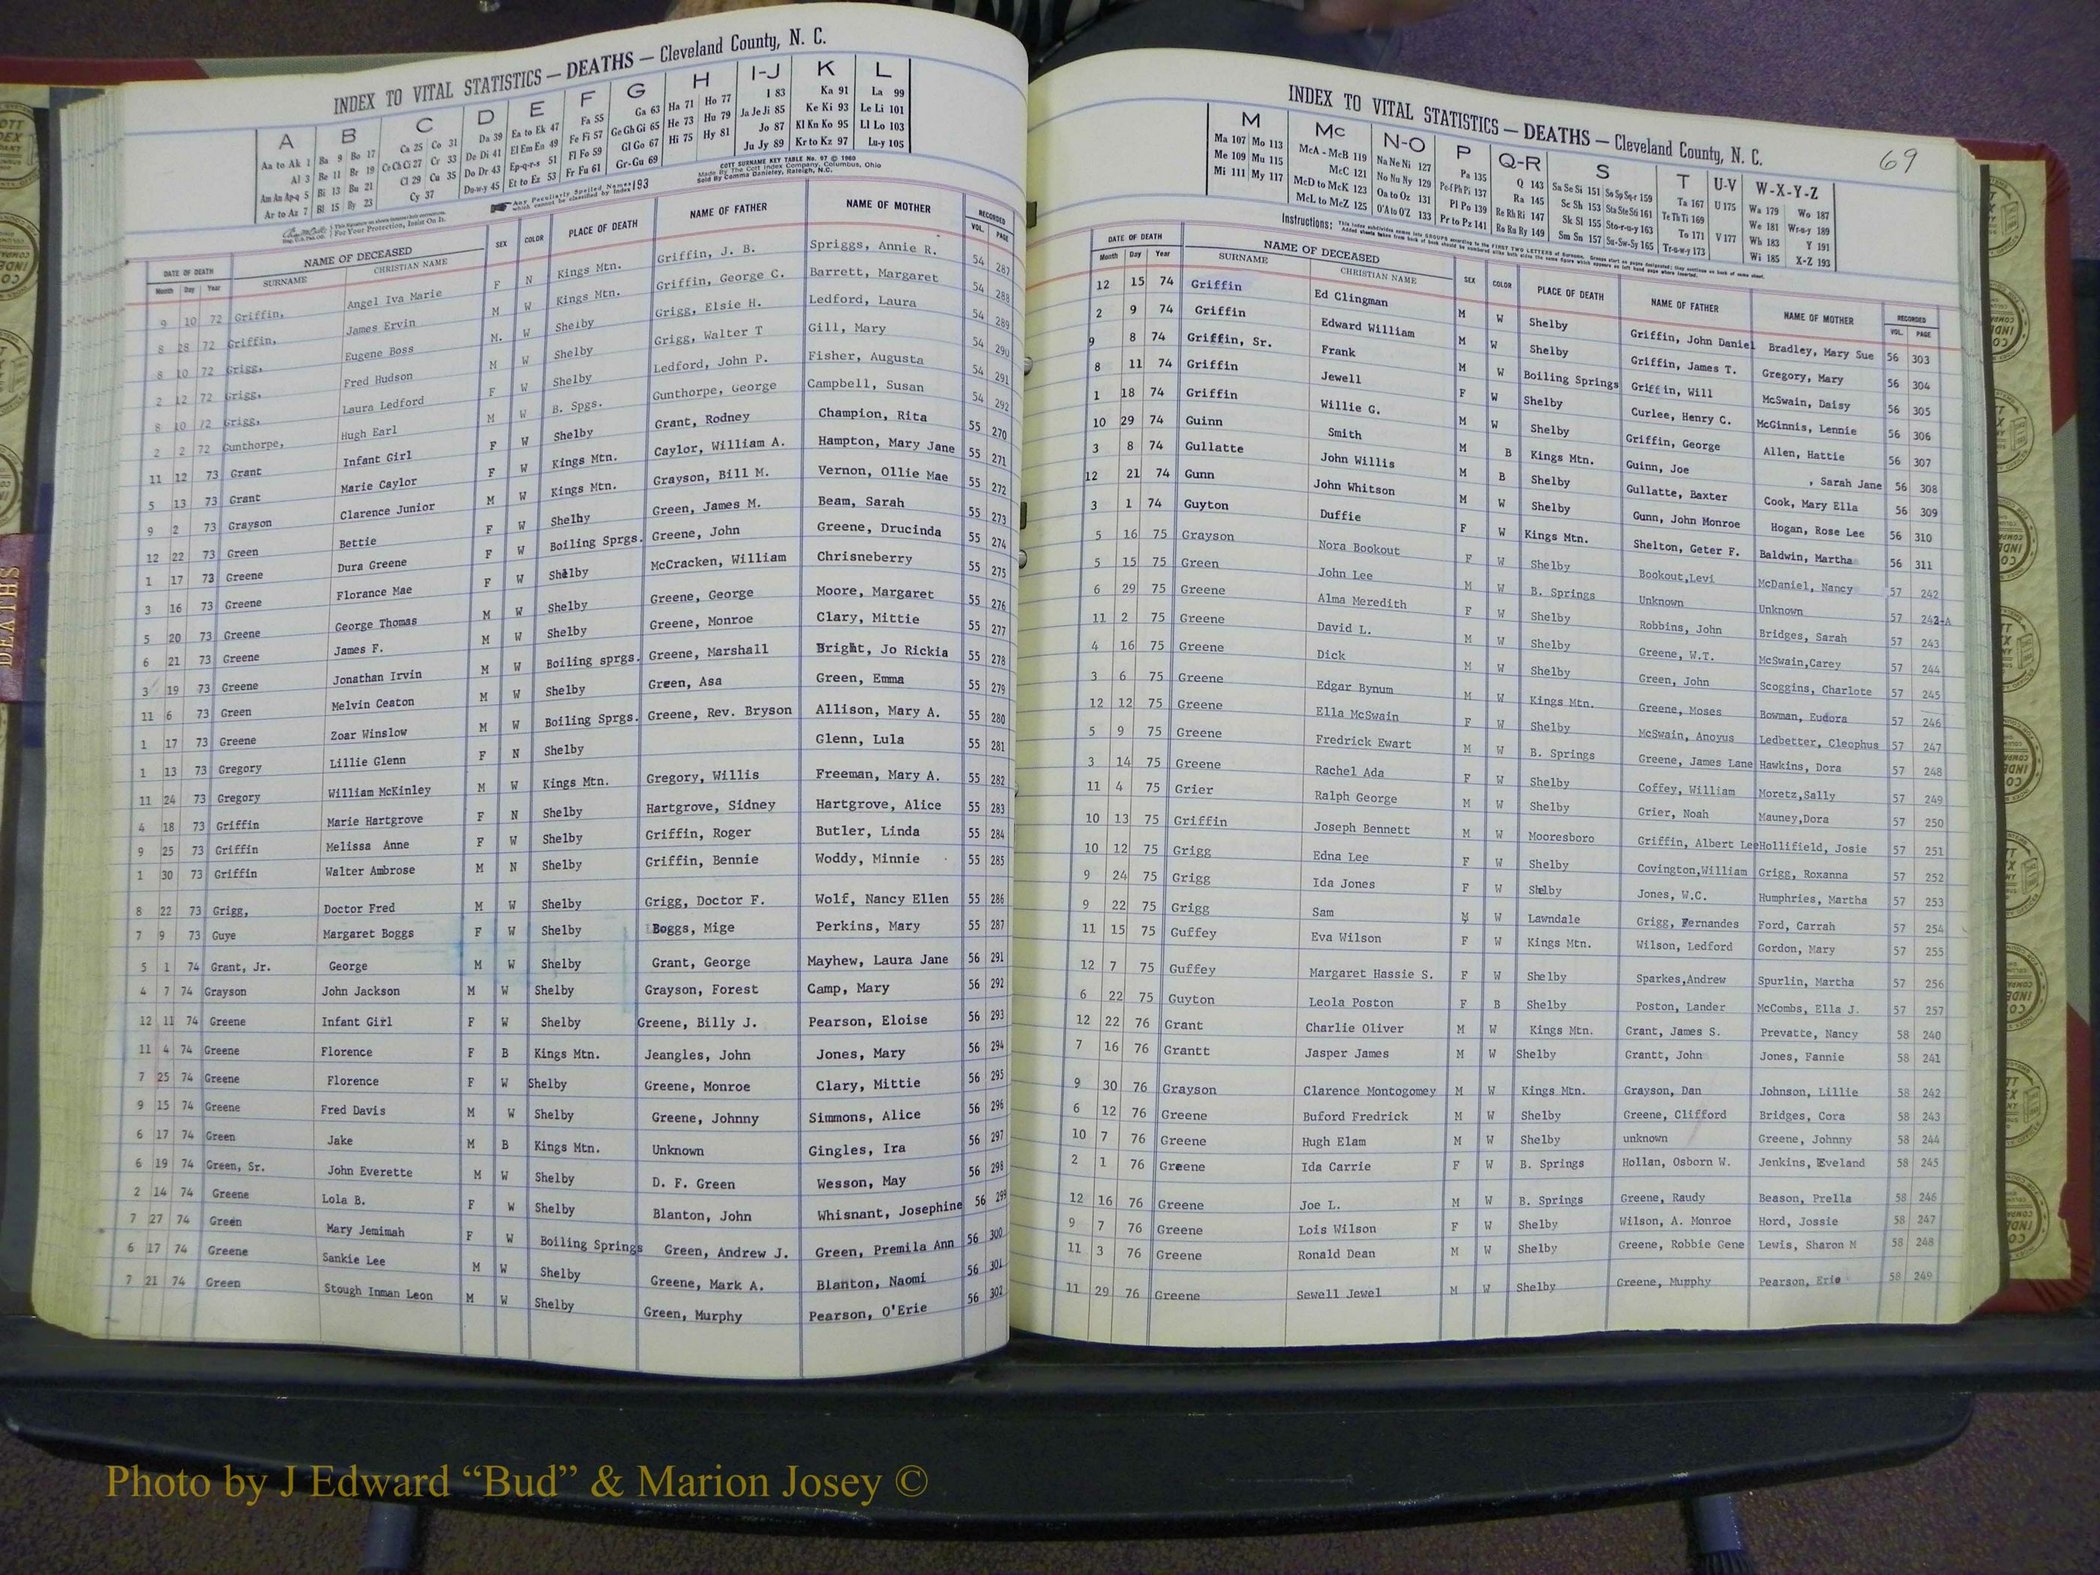 INDEX TO VITAL STATISTICS — DEATHS — Cleveland County, N. C.
A B C D E F G H I-J K L
Aa to Ak 1 Ba 9 Bo 17 Ca 25 Co 31 Da 39 Ea to Ek 47 Fa 55 Ga 63 Ha 71 Ho 77 I 83 Ka 91 La 99
Al 3 Be 11 Br 19 Ce Ch Ci 27 Cr 33 De Di 41 El Em En 49 Fe Fi 57 Ge Gh Gi 65 He 73 Hu 79 Ja Je Ji 85 Ke Ki 93 Le Li 101
Am An Ap-q 5 Bi 13 Bu 21 Cl 29 Cu 35 Do Dr 43 Ep-q-r-s 51 Fl Fo 59 Gl Go 67 Hi 75 Hy 81 Jo 87 Kl Kn Ko 95 Ll Lo 103
Ar to Az 7 Bl 15 By 23 Cy 37 Du-w-y 45 Et to Ez 53 Fr Fu 61 Gr-Gu 69 Ju Jy 89 Kr to Kz 97 Lu-y 105
COTT SURNAME KEY TABLE No. 97 © 1960
Made By The Cott Index Company, Columbus, Ohio
Sold By Comma Danieley, Raleigh, N.C.
Any Peculiarly Spelled Names which cannot be classified by Index 193
For Your Protection, Insist On It.
DATE OF DEATH NAME OF DECEASED SEX COLOR PLACE OF DEATH NAME OF FATHER NAME OF MOTHER RECORDED
Month Day Year SURNAME CHRISTIAN NAME VOL. PAGE
9 10 72 Griffin, Angel Iva Marie F N Kings Mtn. Griffin, J. B. Spriggs, Annie R. 54 287
8 28 72 Griffin, James Ervin M W Kings Mtn. Griffin, George C. Barrett, Margaret 54 288
8 10 72 Grigg, Eugene Boss M. W Shelby Grigg, Elsie H. Ledford, Laura 54 289
2 12 72 Grigg, Fred Hudson M W Shelby Grigg, Walter T Gill, Mary 54 290
8 10 72 Grigg, Laura Ledford F W Shelby Ledford, John P. Fisher, Augusta 54 291
2 2 72 Gunthorpe, Hugh Earl M W B. Spgs. Gunthorpe, George Campbell, Susan 54 292
11 12 73 Grant Infant Girl F W Shelby Grant, Rodney Champion, Rita 55 270
5 13 73 Grant Marie Caylor F W Kings Mtn. Caylor, William A. Hampton, Mary Jane 55 271
9 2 73 Grayson Clarence Junior M W Kings Mtn. Grayson, Bill M. Vernon, Ollie Mae 55 272
12 22 73 Green Bettie F W Shelby Green, James M. Beam, Sarah 55 273
1 17 73 Greene Dura Greene F W Boiling Sprgs. Greene, John Greene, Drucinda 55 274
3 16 73 Greene Florance Mae F W Shelby McCracken, William Chrisneberry 55 275
5 20 73 Greene George Thomas M W Shelby Greene, George Moore, Margaret 55 276
6 21 73 Greene James F. M W Shelby Greene, Monroe Clary, Mittie 55 277
3 19 73 Greene Jonathan Irvin M W Boiling sprgs. Greene, Marshall Bright, Jo Rickia 55 278
11 6 73 Green Melvin Ceaton M W Shelby Green, Asa Green, Emma 55 279
1 17 73 Greene Zoar Winslow M W Boiling Sprgs. Greene, Rev. Bryson Allison, Mary A. 55 280
1 13 73 Gregory Lillie Glenn F N Shelby Glenn, Lula 55 281
11 24 73 Gregory William McKinley M W Kings Mtn. Gregory, Willis Freeman, Mary A. 55 282
4 18 73 Griffin Marie Hartgrove F N Shelby Hartgrove, Sidney Hartgrove, Alice 55 283
9 25 73 Griffin Melissa Anne F W Shelby Griffin, Roger Butler, Linda 55 284
1 30 73 Griffin Walter Ambrose M N Shelby Griffin, Bennie Woddy, Minnie 55 285
8 22 73 Grigg, Doctor Fred M W Shelby Grigg, Doctor F. Wolf, Nancy Ellen 55 286
7 9 73 Guye Margaret Boggs F W Shelby Boggs, Mige Perkins, Mary 55 287
5 1 74 Grant, Jr. George M W Shelby Grant, George Mayhew, Laura Jane 56 291
4 7 74 Grayson John Jackson M W Shelby Grayson, Forest Camp, Mary 56 292
12 11 74 Greene Infant Girl F W Shelby Greene, Billy J. Pearson, Eloise 56 293
11 4 74 Greene Florence F B Kings Mtn. Jeangles, John Jones, Mary 56 294
7 25 74 Greene Florence F W Shelby Greene, Monroe Clary, Mittie 56 295
9 15 74 Greene Fred Davis M W Shelby Greene, Johnny Simmons, Alice 56 296
6 17 74 Green Jake M B Kings Mtn. Unknown Gingles, Ira 56 297
6 19 74 Green, Sr. John Everette M W Shelby D. F. Green Wesson, May 56 298
2 14 74 Greene Lola B. F W Shelby Blanton, John Whisnant, Josephine 56 299
7 27 74 Green Mary Jemimah F W Boiling Springs Green, Andrew J. Green, Premila Ann 56 300
6 17 74 Greene Sankie Lee M W Shelby Greene, Mark A. Blanton, Naomi 56 301
7 21 74 Green Stough Inman Leon M W Shelby Green, Murphy Pearson, O'Erie 56 302
69
INDEX TO VITAL STATISTICS — DEATHS — Cleveland County, N. C.
M Mc N-O P Q-R S T U-V W-X-Y-Z
Ma 107 Mo 113 McA - McB 119 Na Ne Ni 127 Pa 135 Q 143 Sa Se Si 151 So Sp Sq-r 159 Ta 167 U 175 Wa 179 Wo 187
Me 109 Mu 115 McC 121 No Nu Ny 129 Pe-f Ph Pi 137 Ra 145 Sc Sh 153 Sta Ste Sti 161 Te Th Ti 169 We 181 Wr-u-y 189
Mi 111 My 117 McD to McK 123 Oa to Oz 131 Pl Po 139 Re Rh Ri 147 Sk Sl 155 Sto-r-u-y 163 To 171 V 177 Wh 183 Y 191
McL to McZ 125 O'A to O'Z 133 Pr to Pz 141 Ro Ru Ry 149 Sm Sn 157 Su-Sw-Sy 165 Tr-u-w-y 173 Wi 185 X-Z 193
Instructions: This index subdivides names into GROUPS according to the FIRST TWO LETTERS of Surname.
DATE OF DEATH NAME OF DECEASED SEX COLOR PLACE OF DEATH NAME OF FATHER NAME OF MOTHER RECORDED
Month Day Year SURNAME CHRISTIAN NAME VOL. PAGE
12 15 74 Griffin Ed Clingman M W Shelby Griffin, John Daniel Bradley, Mary Sue 56 303
2 9 74 Griffin Edward William M W Shelby Griffin, James T. Gregory, Mary 56 304
9 8 74 Griffin, Sr. Frank M W Boiling Springs Griffin, Will McSwain, Daisy 56 305
8 11 74 Griffin Jewell F W Shelby Curlee, Henry C. McGinnis, Lennie 56 306
1 18 74 Griffin Willie G. M W Shelby Griffin, George Allen, Hattie 56 307
10 29 74 Guinn Smith M B Kings Mtn. Guinn, Joe , Sarah Jane 56 308
3 8 74 Gullatte John Willis M B Shelby Gullatte, Baxter Cook, Mary Ella 56 309
12 21 74 Gunn John Whitson M W Shelby Gunn, John Monroe Hogan, Rose Lee 56 310
3 1 74 Guyton Duffie F W Kings Mtn. Shelton, Geter F. Baldwin, Martha 56 311
5 16 75 Grayson Nora Bookout F W Shelby Bookout,Levi McDaniel, Nancy 57 242
5 15 75 Green John Lee M W B. Springs Unknown Unknown 57 242-A
6 29 75 Greene Alma Meredith F W Shelby Robbins, John Bridges, Sarah 57 243
11 2 75 Greene David L. M W Shelby Greene, W.T. McSwain,Carey 57 244
4 16 75 Greene Dick M W Shelby Green, John Scoggins, Charlote 57 245
3 6 75 Greene Edgar Bynum M W Kings Mtn. Greene, Moses Bowman, Eudora 57 246
12 12 75 Greene Ella McSwain F W Shelby McSwain, Anoyus Ledbetter, Cleophus 57 247
5 9 75 Greene Fredrick Ewart M W B. Springs Greene, James Lane Hawkins, Dora 57 248
3 14 75 Greene Rachel Ada F W Shelby Coffey, William Moretz,Sally 57 249
11 4 75 Grier Ralph George M W Shelby Grier, Noah Mauney,Dora 57 250
10 13 75 Griffin Joseph Bennett M W Mooresboro Griffin, Albert Lee Hollifield, Josie 57 251
10 12 75 Grigg Edna Lee F W Shelby Covington,William Grigg, Roxanna 57 252
9 24 75 Grigg Ida Jones F W Shelby Jones, W.C. Humphries, Martha 57 253
9 22 75 Grigg Sam M W Lawndale Grigg, Fernandes Ford, Carrah 57 254
11 15 75 Guffey Eva Wilson F W Kings Mtn. Wilson, Ledford Gordon, Mary 57 255
12 7 75 Guffey Margaret Hassie S. F W Shelby Sparkes,Andrew Spurlin, Martha 57 256
6 22 75 Guyton Leola Poston F B Shelby Poston, Lander McCombs, Ella J. 57 257
12 22 76 Grant Charlie Oliver M W Kings Mtn. Grant, James S. Prevatte, Nancy 58 240
7 16 76 Grantt Jasper James M W Shelby Grantt, John Jones, Fannie 58 241
9 30 76 Grayson Clarence Montogomey M W Kings Mtn. Grayson, Dan Johnson, Lillie 58 242
6 12 76 Greene Buford Fredrick M W Shelby Greene, Clifford Bridges, Cora 58 243
10 7 76 Greene Hugh Elam M W Shelby unknown Greene, Johnny 58 244
2 1 76 Greene Ida Carrie F W B. Springs Hollan, Osborn W. Jenkins, Eveland 58 245
12 16 76 Greene Joe L. M W B. Springs Greene, Raudy Beason, Prella 58 246
9 7 76 Greene Lois Wilson F W Shelby Wilson, A. Monroe Hord, Jossie 58 247
11 3 76 Greene Ronald Dean M W Shelby Greene, Robbie Gene Lewis, Sharon M 58 248
11 29 76 Greene Sewell Jewel M W Shelby Greene, Murphy Pearson, Erie 58 249
DEATHS
Photo by J Edward “Bud” & Marion Josey ©